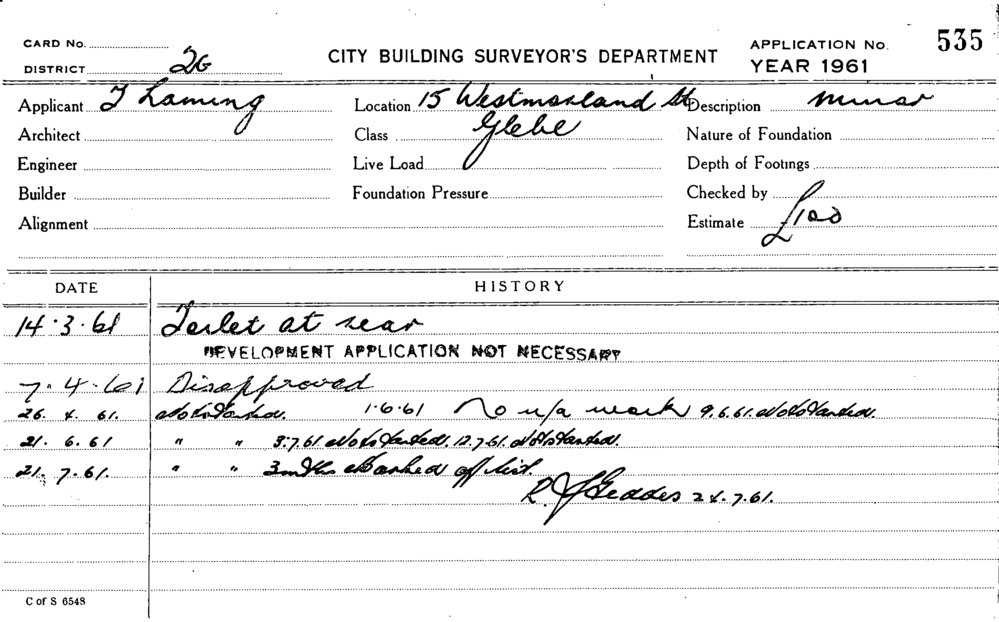 CARD No.
DISTRICT 26
CITY BUILDING SURVEYOR'S DEPARTMENT
APPLICATION No. 535
YEAR 1961
Applicant J Laming
Location 15 Westmoreland St
Description minor
Architect
Class Glebe
Nature of Foundation
Engineer
Live Load
Depth of Footings
Builder
Foundation Pressure
Checked by
Alignment
Estimate £100
DATE HISTORY
14.3.61 Toilet at rear
DEVELOPMENT APPLICATION NOT NECESSARY
7.4.61 Disapproved
26. 4. 61. Not Started. 1.6.61 No u/a work 9.6.61. Not Started.
21. 6. 61 " " 3.7.61 Not Started. 12.7.61. Not Started.
21. 7. 61. " " 3 mths Marked off list.
R. J. Geddes 24.7.61.
C of S 6548